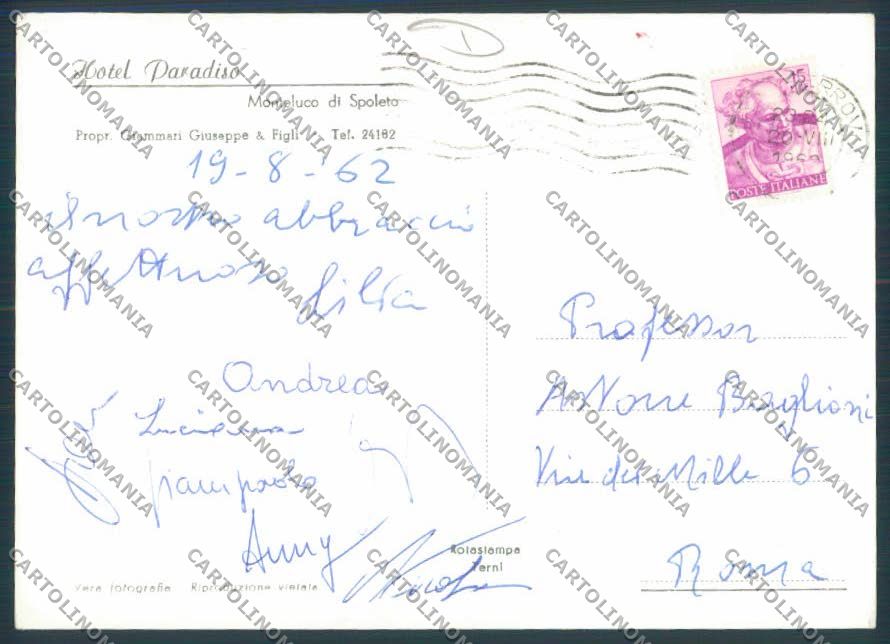 Hotel Paradiso
Monteluco di Spoleto
Propr. Giammari Giuseppe & Figli - Tel. 24182
19-8-'62
il nostro abbraccio
affettuoso Silvia
Andrea
Luciana
Giampaolo
Anny
Rotastampa
Terni
Vera fotografia Riproduzione vietata
15
20-VIII
POSTE ITALIANE
Professor
Astorre Baglioni
Viale dei Mille 6
Roma
CARTOLINOMANIA